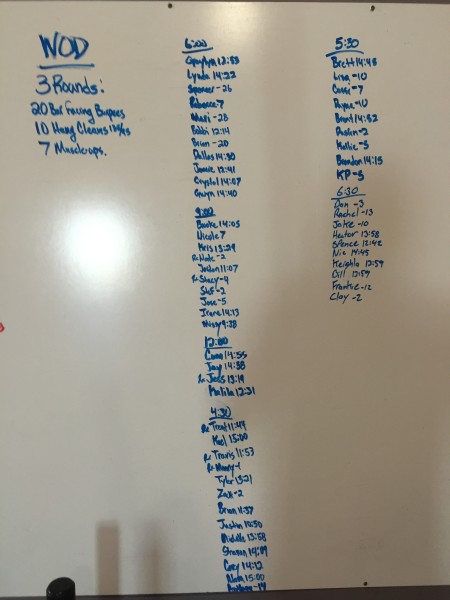 WOD
3 Rounds:
20 Bar Facing Burpees
10 Hang Cleans 135/95
7 Muscle ups.
6:00
12:53
Lynda 14:22
Spencer -26
Rebecca -7
-28
Bobbi 12:14
Brian -20
Dallas 14:30
Jamie 12:41
Crystal 14:07
Gwyn 14:40
9:00
Brooke 14:05
Nicole 7
Kris 13:29
Rx Nate -2
Jordon 11:07
Rx Stacy -4
Stef -2
Jose -5
Irene 14:13
Missy 9:38
12:00
14:55
Jay 14:38
Rx Jess 13:19
12:31
4:30
Rx Trent 11:47
15:00
Rx Travis 11:53
Rx Mandy -1
Tyler 13:21
Zak -2
Brian 11:37
Justin 10:50
Michelle 13:58
14:09
Corey 14:12
15:00
-14
5:30
Brett 14:48
-10
-7
Payne -10
Brent 14:52
Dustin -2
Hollie -5
Brandon 14:15
KP -5
6:30
Dan -3
Rachel -13
Jake -10
Hector 13:58
Spence 12:42
Nic 14:45
Keighla 12:59
Bill 13:59
Frankie -12
Clay -2